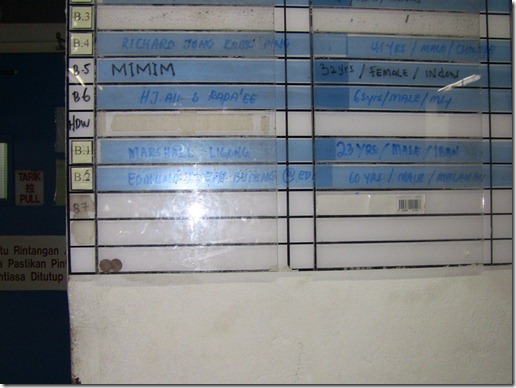 B.3
B.4 RICHARD 41 YRS / MALE / CHINESE
B.5 MIMIM 32 yrs / FEMALE / INDON
B6 HJ. ALI B RADA'EE 65 yrs / MALE / MLY
HDW
B.1 MARSHALL LIGONG 23 YRS / MALE / IBAN
B.2 60 YRS / MALE / MELANAU
B7
TARIK
拉
PULL
tu Rintangan A
Pastikan Pin
ntiasa Ditutup